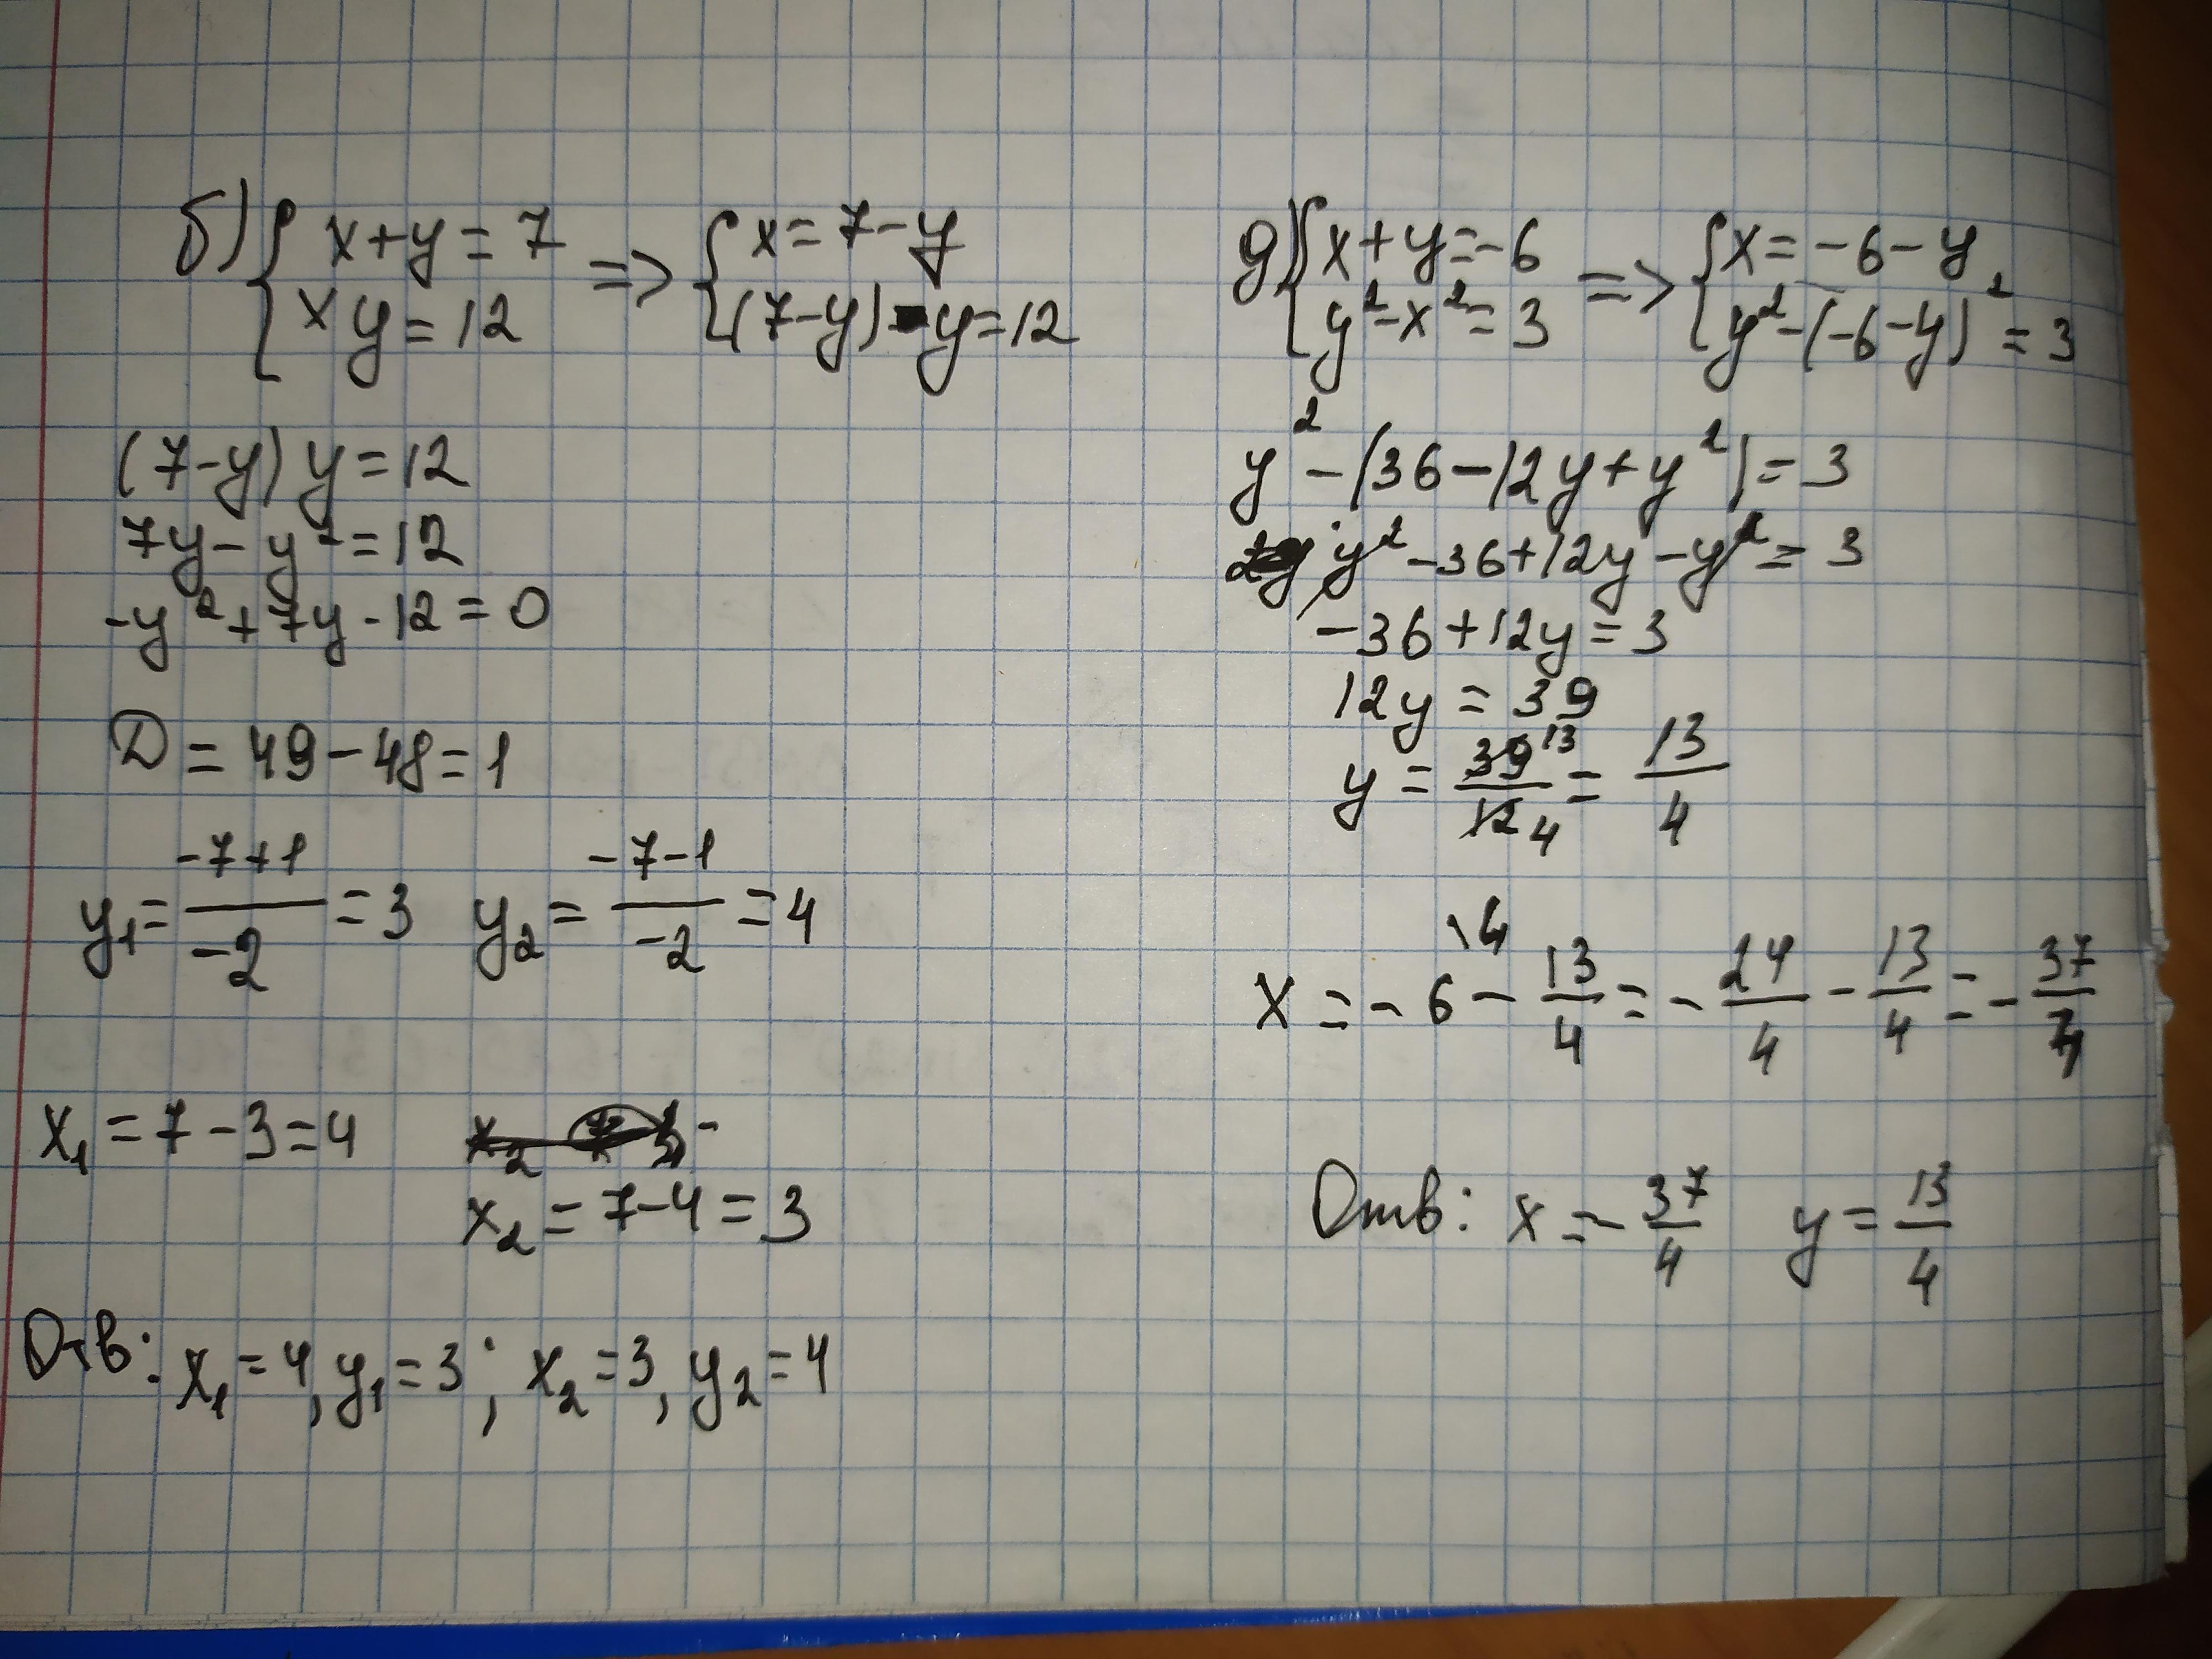 б) { x+y=7 => { x=7-y
xy=12 (7-y) y=12
(7-y) y=12
7y-y²=12
-y²+7y-12=0
D=49-48=1
y₁= -7+1 / -2 =3 y₂= -7-1 / -2 =4
x₁=7-3=4
x₂=7-4=3
Отв: x₁=4, y₁=3; x₂=3, y₂=4
g) { x+y=-6 => { x=-6-y
y²-x²=3 y²-(-6-y)²=3
y²-(36-12y+y²)=3
y²-36+12y-y²=3
-36+12y=3
12y=39
y= 39¹³ / 12 4 = 13/4
x=-6\4 - 13/4 = -24/4 - 13/4 = -37/4
Отв: x=-37/4 y=13/4